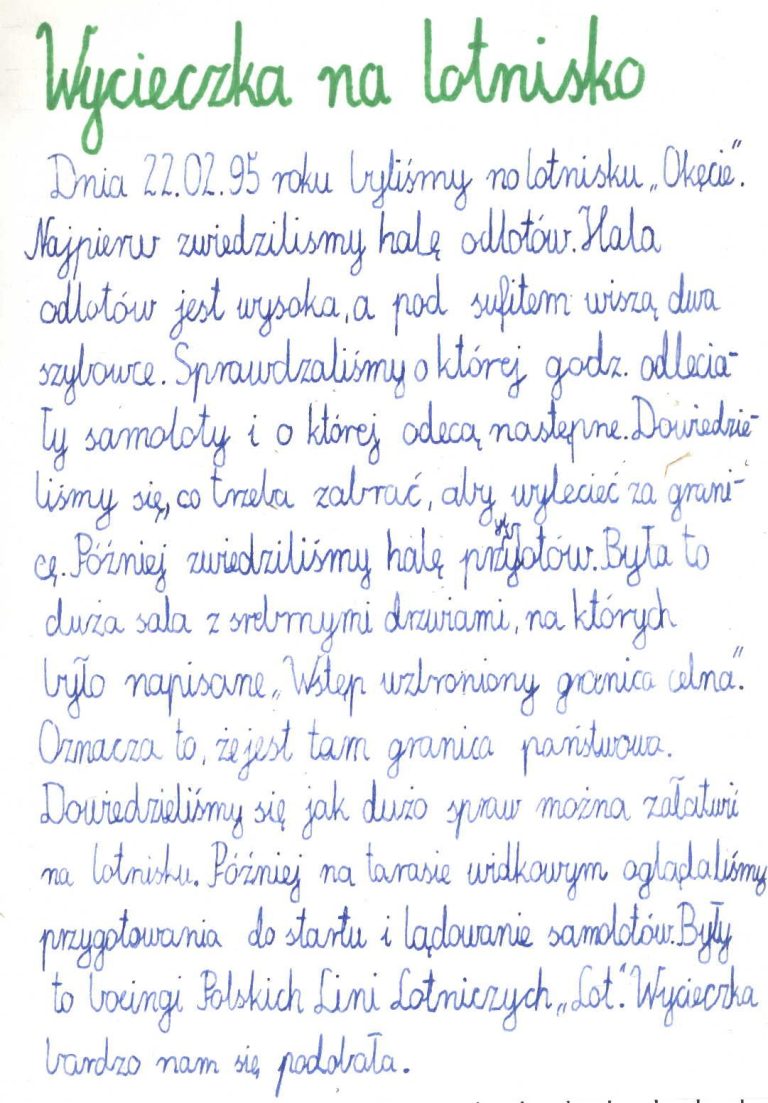 Wycieczka na lotnisko
Dnia 22.02.95 roku byliśmy na lotnisku „Okęcie”.
Najpierw zwiedzilismy halę odlotów. Hala
odlotów jest wysoka, a pod sufitem wiszą dwa
szybowce. Sprawdzaliśmy o której godz. odlecia-
ły samoloty i o której odecą następne. Dowiedzie-
liśmy się, co trzeba zabrać, aby wylecieć za grani-
cę. Później zwiedziliśmy halę przylotów. Była to
duża sala z srebrnymi drzwiami, na których
było napisane „Wstęp wzbroniony granica celna”.
Oznacza to, że jest tam granica państwowa.
Dowiedzieliśmy się jak dużo spraw można załatwi
na lotnisku. Później na tarasie widkowym oglądaliśmy
przygotowania do startu i lądowanie samolotów. Były
to boeingi Polskich Lini Lotniczych „Lot”. Wycieczka
bardzo nam się podobała.